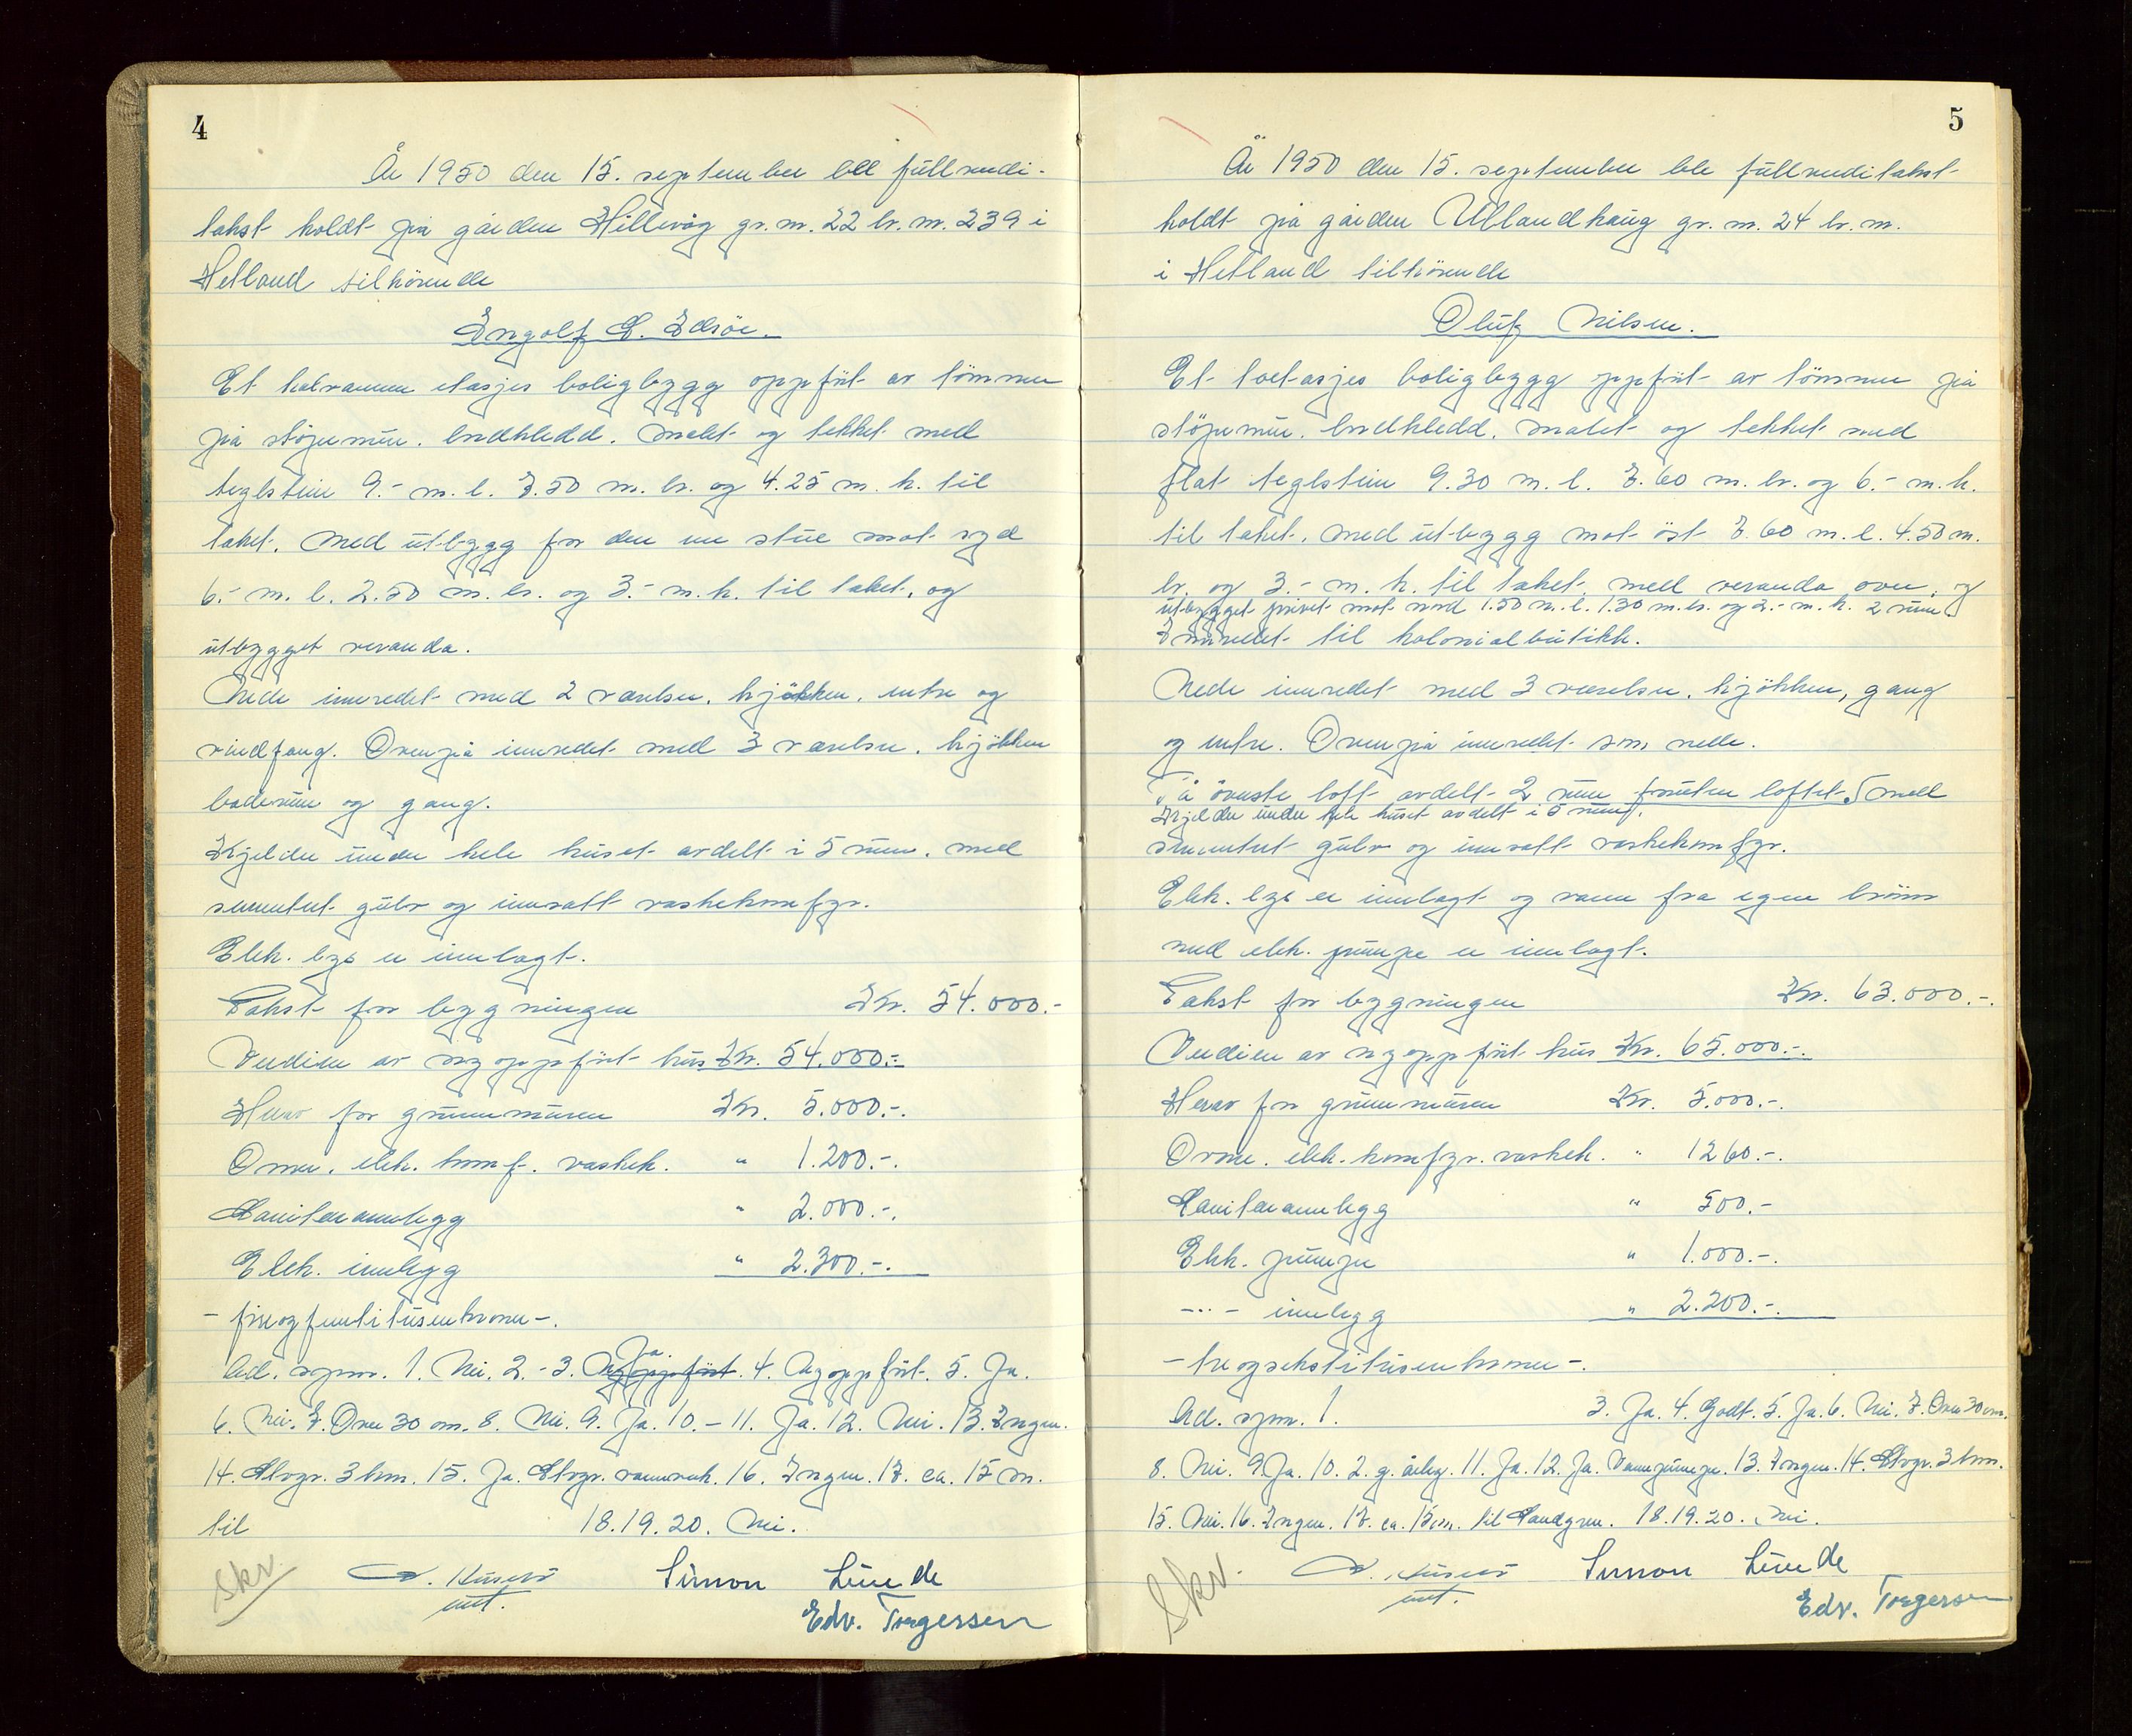 4
År 1950 den 15. september ble fullverdi-
takst holdt på gården Hillevåg gr. nr. 22 br. nr. 239 i
Hetland tilhörende
Ingolf E. Edsöe.
Et halvannen etasjes boligbygg oppfört av tömmer
på stöpemur. bordkledd. malet og tekket med
teglstein 9.- m. l. 7.50 m. br. og 4.25 m. h. til
taket. med utbygg for den ene stue mot syd
6.- m. l. 2.50 m. br. og 3.- m. h. til taket, og
utbygget veranda.
Nede innredet med 2 værelser, kjökken, entre og
vindfang. Ovenpå innredet med 3 værelser, kjökken
baderum og gang.
Kjelder under hele huset avdelt i 5 rum. med
sementert gulv og innsatt vaskekomfyr.
Elek. lys er innlagt.
Takst for bygningen Kr. 54.000.-
Verdien av nyoppfört hus Kr. 54.000.-
Herav for grunnmuren Kr. 5.000.-.
Ovner. elek. komf. vaskek. " 1.200.-.
Sanitæranlegg " 2.000.-.
Elek. innlegg " 2.300.-.
- fireogfemtitusenkroner -.
Ad. spm. 1. Nei. 2. - 3. Nyoppfört Ja. 4. Nyoppfört. 5. Ja.
6. Nei. 7. Over 30 cm. 8. Nei. 9. Ja. 10. - 11. Ja. 12. Nei. 13. Ingen.
14. Stvgr. 3 km. 15. Ja. Stvgr. vannverk. 16. Ingen. 17. ca. 15 m.
til 18. 19. 20. Nei.
Skr.
Simon Lunde
Edv. Torgersen
5
År 1950 den 15. september ble fullverditakst
holdt på gården Ullandhaug gr. nr. 24 br. nr.
i Hetland tilhörende
Oluf Nilsen.
Et toetasjes boligbygg oppfört av tömmer på
stöpemur. bordkledd. malet og tekket med
flat teglstein 9.30 m. l. 7.60 m. br. og 6.- m. h.
til taket. med utbygg mot öst 7.60 m. l. 4.50 m.
br. og 3.- m. h. til taket. med veranda over, og
utbygget privet mot nord 1.50 m. l. 1.30 m. br. og 2.- m. h. 2 rum
Innredet til kolonialbutikk.
Nede innredet med 3 værelser, kjökken, gang
og entre. Ovenpå innredet som nede.
På överste loft avdelt 2 rum foruten loftet. med
Kjelder under hele huset avdelt i 5 rum.
sementert gulv og innsatt vaskekomfyr.
Elek. lys er innlagt og vann fra egen brönn
med elek. pumpe er innlagt.
Takst for bygningen Kr. 63.000.-.
Verdien av nyoppfört hus Kr. 65.000.-.
Herav for grunnmuren Kr. 5.000.-.
Ovne. elek. komfyr. vaskek. " 1260.-.
Sanitæranlegg " 500.-
Elek. pumpe " 1.000.-.
-"- innlegg " 2.200.-.
- treogsekstitusenkroner -.
Ad. spm. 1. 3. Ja. 4. Godt. 5. Ja. 6. Nei. 7. Over 30 cm.
8. Nei. 9. Ja. 10. 2. g. årlig. 11. Ja. 12. Ja. Vannpumpe. 13. Ingen. 14. Stvgr. 3 km.
15. Nei. 16. Ingen. 17. ca. 15 m. til 18. 19. 20. Nei.
Skr.
Simon Lunde
Edv. Torgersen